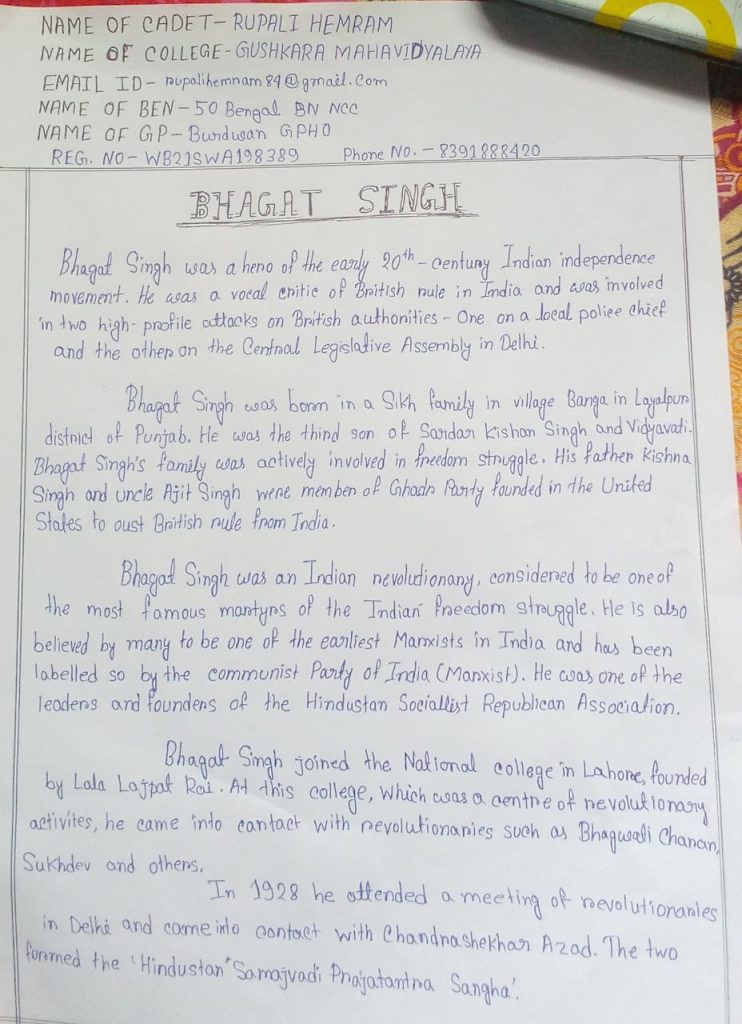 NAME OF CADET- RUPALI HEMRAM
NAME OF COLLEGE- GUSHKARA MAHAVIDYALAYA
EMAIL ID- rupalihemram84@gmail.com
NAME OF BEN- 50 Bengal BN NCC
NAME OF GP- Burdwan GPHQ
REG. NO- WB21SWA198389 Phone No. - 8391888420
BHAGAT SINGH
Bhagat Singh was a hero of the early 20th-century Indian independence
movement. He was a vocal critic of British rule in India and was involved
in two high-profile attacks on British authorities - One on a local police chief
and the other on the Central Legislative Assembly in Delhi.
Bhagat Singh was born in a Sikh family in village Banga in Layalpur
district of Punjab. He was the third son of Sardar Kishan Singh and Vidyavati.
Bhagat Singh's family was actively involved in freedom struggle. His father Kishna
Singh and uncle Ajit Singh were member of Ghadr Party founded in the United
States to oust British rule from India.
Bhagat Singh was an Indian revolutionary, considered to be one of
the most famous martyrs of the Indian freedom struggle. He is also
believed by many to be one of the earliest Marxists in India and has been
labelled so by the communist Party of India (Marxist). He was one of the
leaders and founders of the Hindustan Sociallist Republican Association.
Bhagat Singh joined the National college in Lahore, founded
by Lala Lajpat Rai. At this college, which was a centre of revolutionary
activites, he came into contact with revolutionaries such as Bhagwali Charan,
Sukhdev and others.
In 1928 he attended a meeting of revolutionaries
in Delhi and came into contact with Chandrashekhar Azad. The two
formed the 'Hindustan Samajvadi Prajatantra Sangha'.